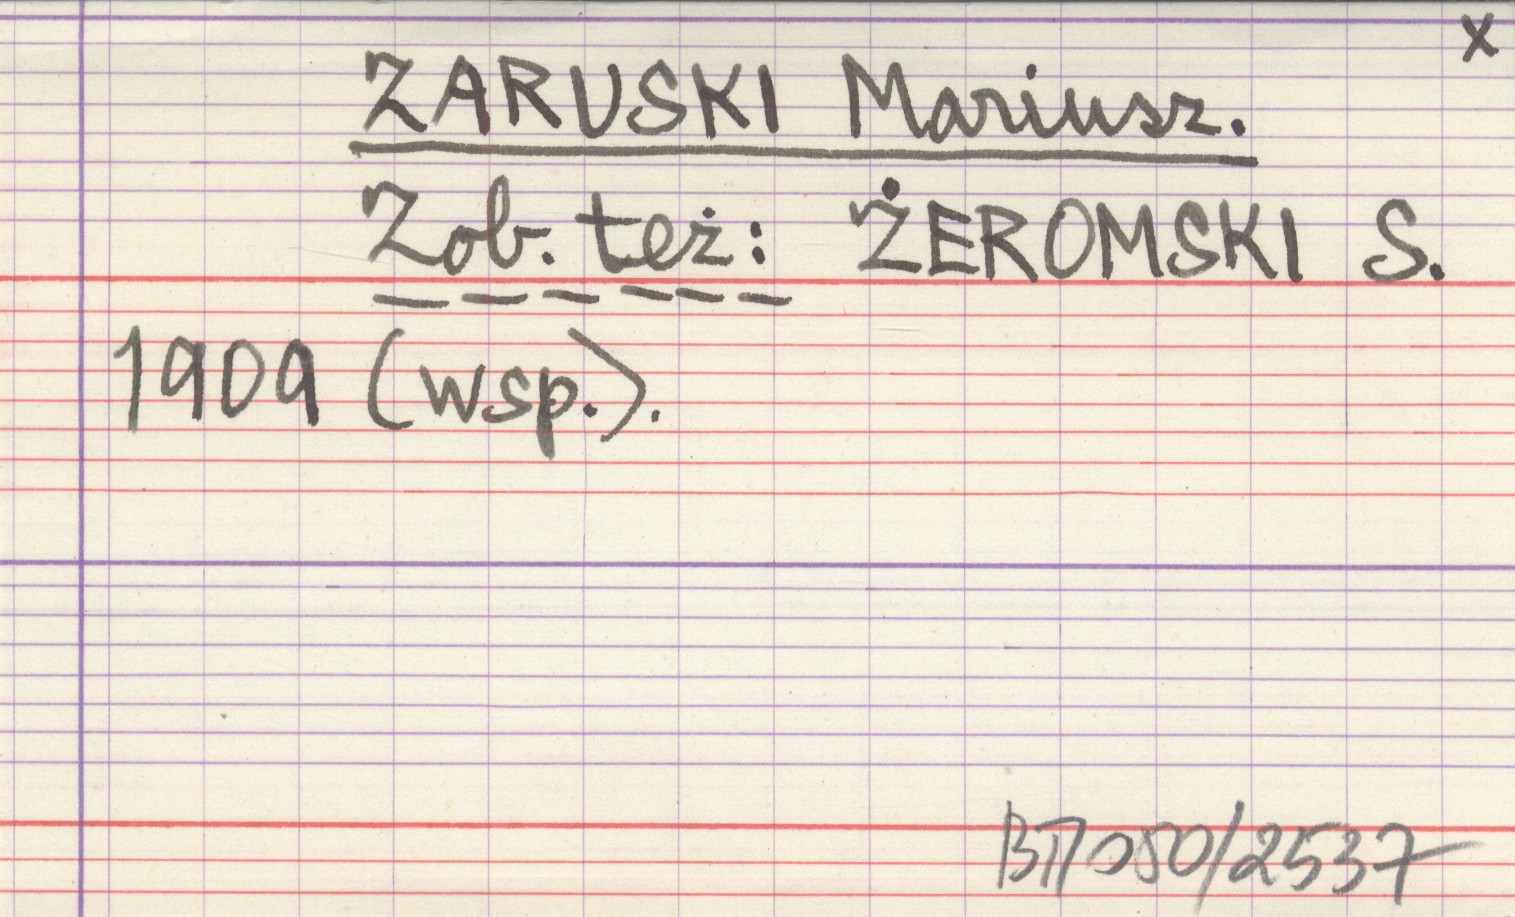 x
ZARUSKI Mariusz.
Zob. też: ŻEROMSKI S.
1909 (wsp.).
BTT050/2537